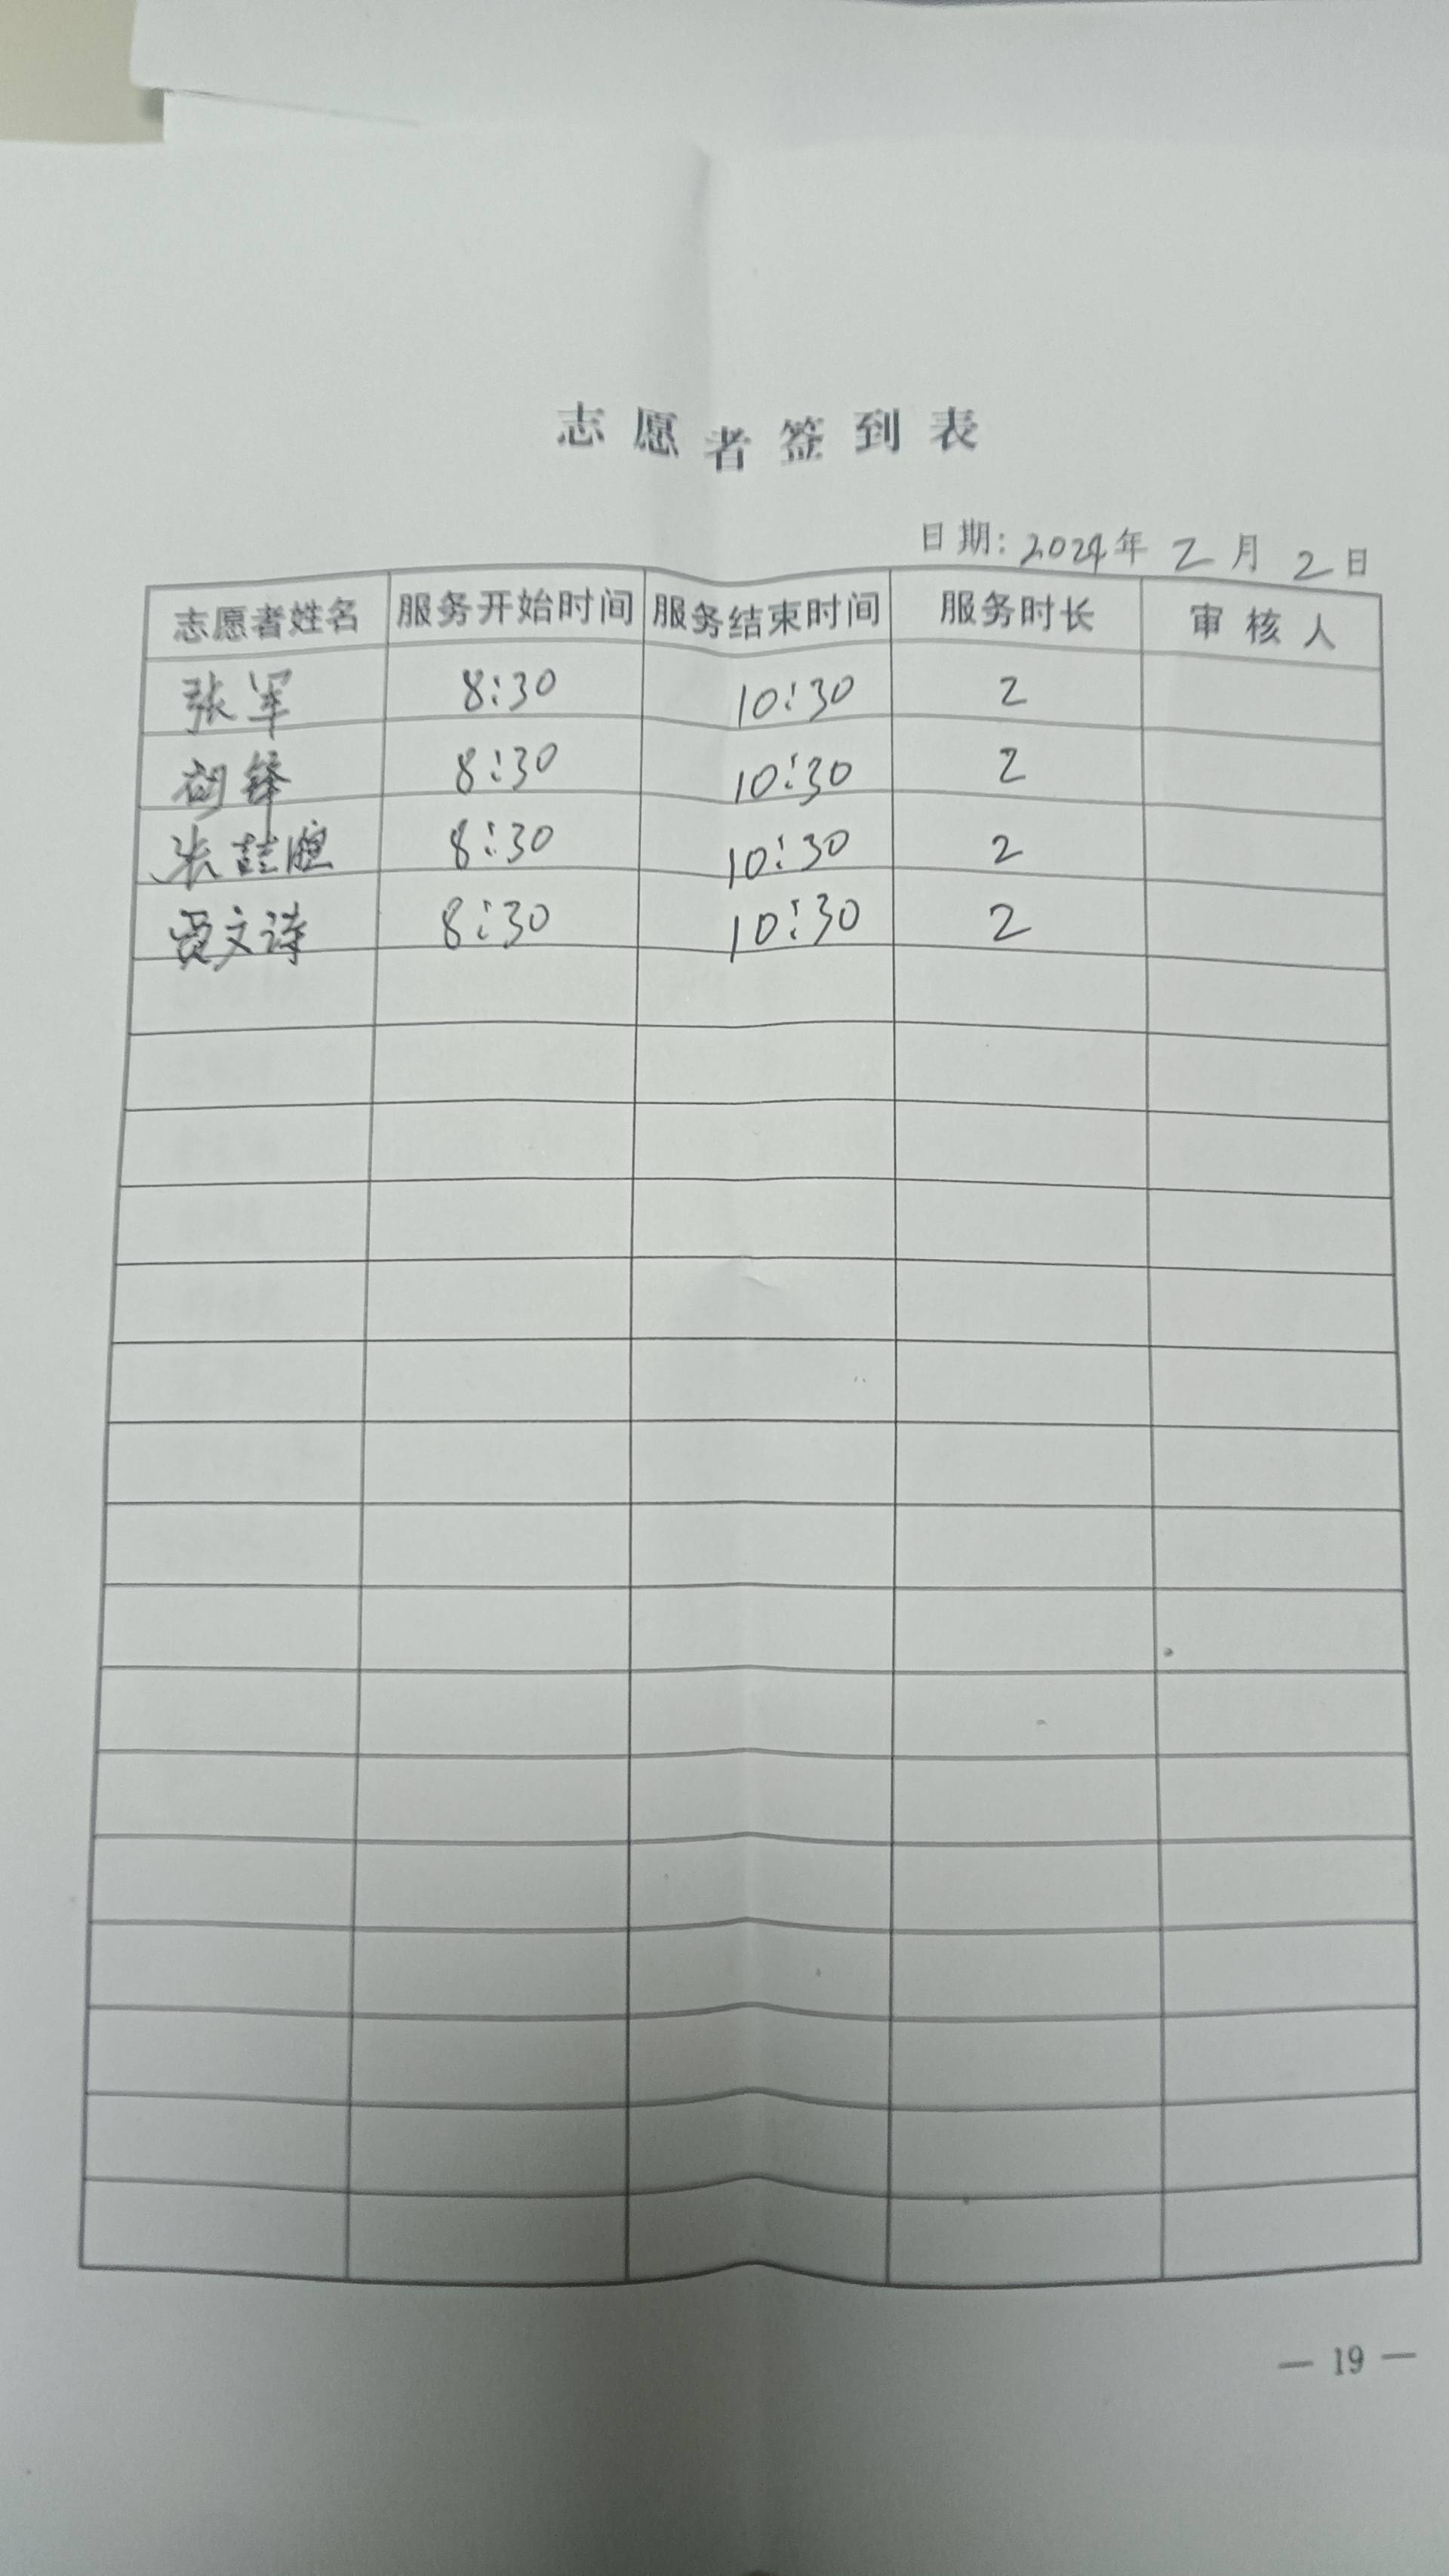 志愿者签到表
日期: 2024年 2月 2日
志愿者姓名 服务开始时间 服务结束时间 服务时长 审核人
张军 8:30 10:30 2
胡锋 8:30 10:30 2
8:30 10:30 2
贾文诗 8:30 10:30 2
— 19 —